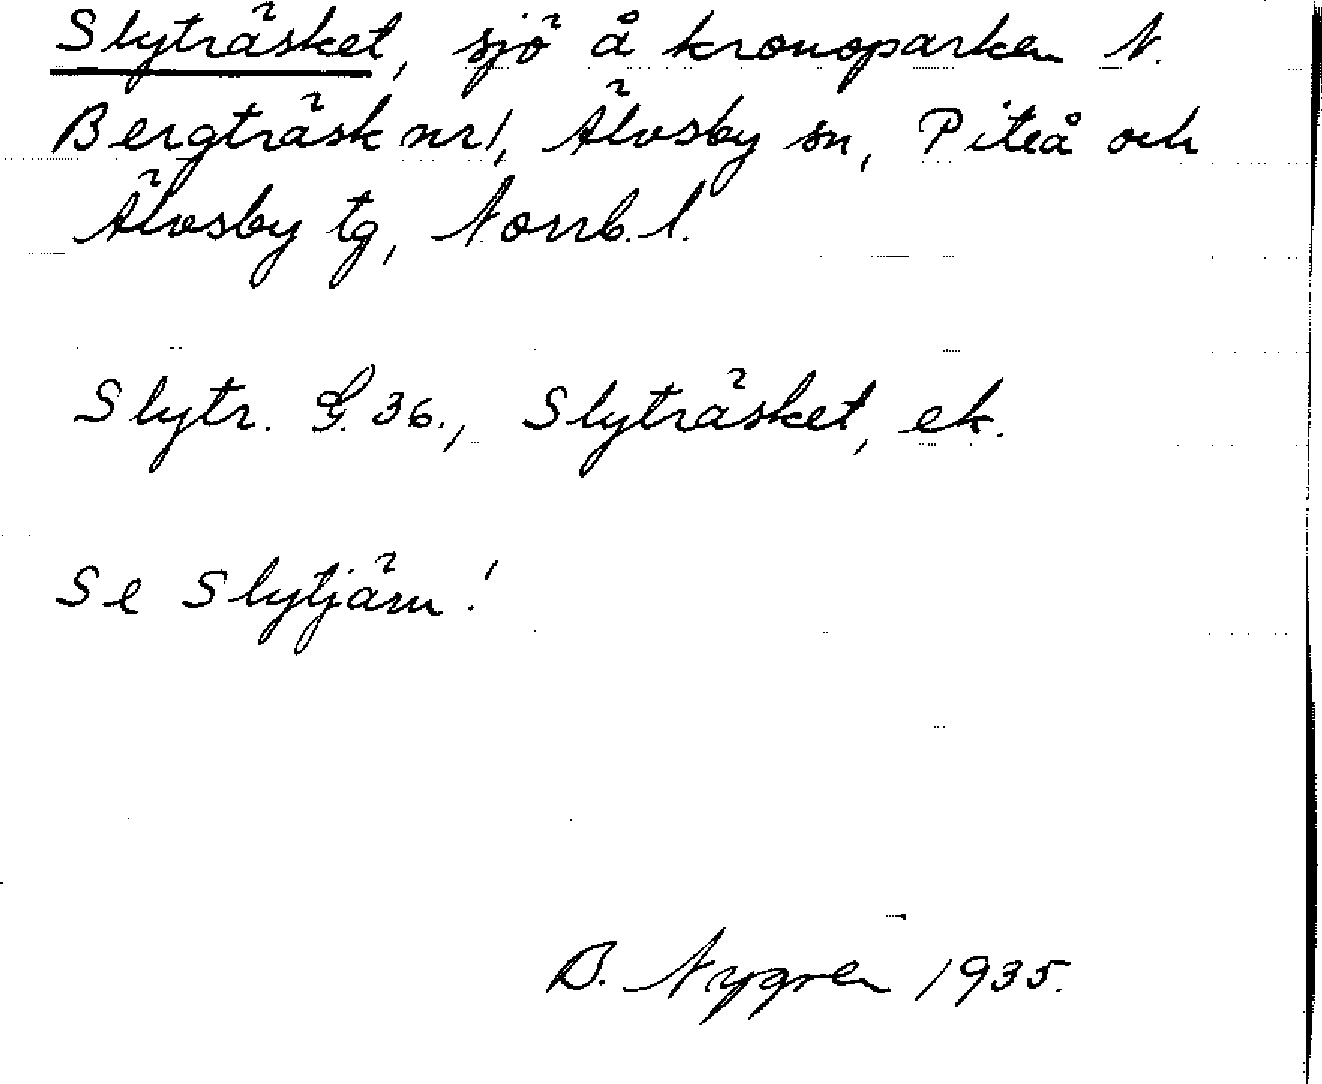 Slyträsket, sjö å kronoparken N.
Bergträsk nr 1, Älvsby sn, Piteå och
Älvsby tg, Norrb. l.
Slytr. G. 36., Slyträsket, ek.
Se Slytjärn!
B. Nygren 1935.